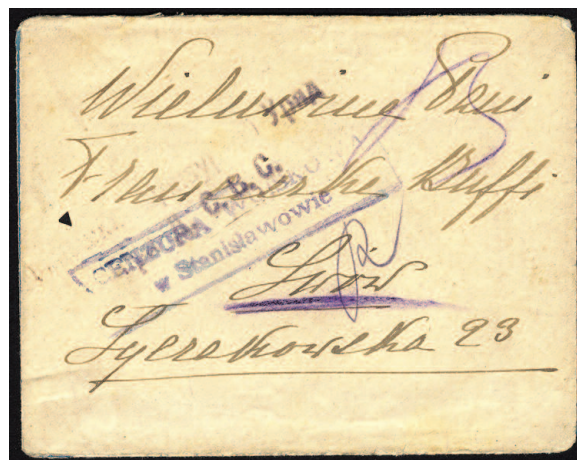 Wielmożna Pani
Franciszka Kuffi
C. B. C.
CENZURA WOJSKOWA
w Stanisławowie
Lwów
Łyczakowska 23